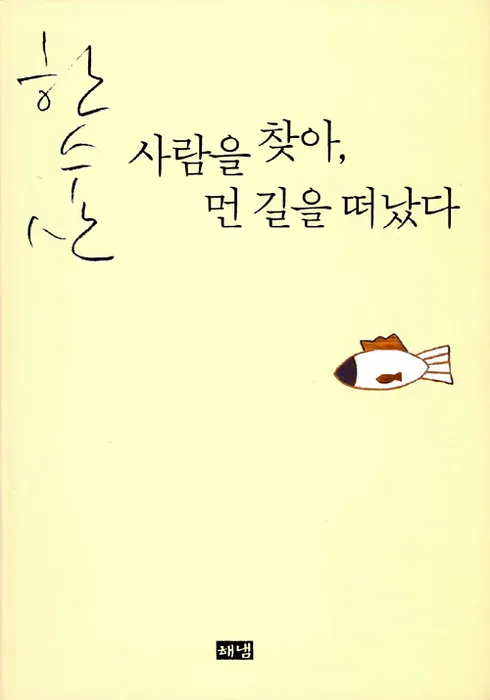 한수산
사람을 찾아,
먼 길을 떠났다
해냄